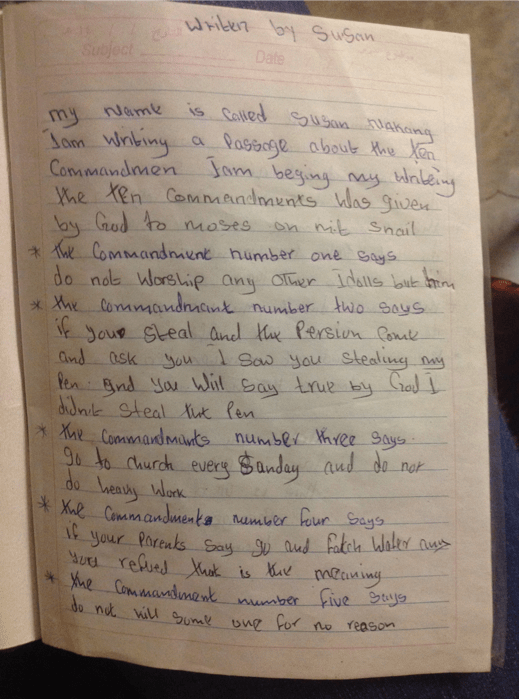 Writen by Susan
Subject Date
my Name is Called Susan Nakang
Iam Writing a Passage about the ten
Commandmen Iam beging my Writeing
the ten Commandments Was given
by God to moses on mit Snail
* the Commandment number one Says
do not Worship any other Idolls but him
* the commandmant number two says
if your Steal and the Persion Come
and ask you I Saw you Stealing my
Pen. And you Will Say true by God I
didn't Steal that Pen
* the Commandmants number three Says.
go to church every Sanday and do not
do heavy Work
* the Commandments number four Says
if your Parents Say go and Fatch Water and
you refued that is the meaning
* the Commandment number five Says
do not kill Some one for no reason